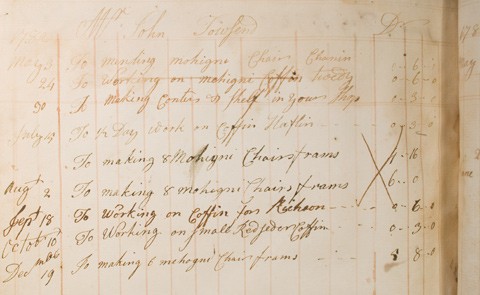 Mr John Townsend Dr
May 3 To mending mohigne Chair 0 6 0
24 To working on mohigne Coffin 0 6 0
30 making Conter & Shelf in your Shop 0 3 0
July To ½ Day work on Coffin 0 3 0
To making 8 Mohigni Chairs frams 16
Augt 2 To making 8 mohigni Chairs frams 6 0
Sept 18 To Working on Coffin for 0 6 0
Octobr 10 To Working on Small Redseder Coffin 0 3 0
Decmbr 19 To making 6 mehogne Chair frams 8 0